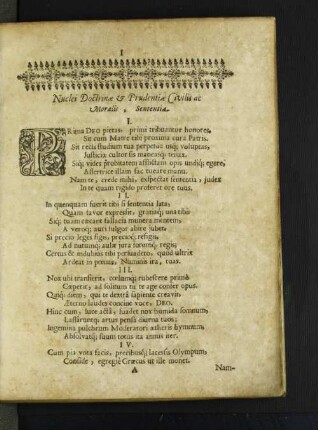 1
Nuclei Doctrinæ & Prudentiæ Civilis ac
Moralis, Sententiæ.
I.
PRima DEO pietas: primi tribuantur honores,
Sit cum Matre tibi proxima cura Patris.
Sit recta studium tua perpetuo atq; voluptas,
Justiciæ cultor sis maneasq; tenax.
Siq; vides probitatem afflictam opis
illam fac tueare manu.
Namte, crede mihi, exspectat judex
In te quam rigido proferet ore tuus.
II.
In quenquam fuerit tibi si sententia lata;
Quam favor expressit, gratiaq; una tibi
Siq; tuam falsacia munera mentem,
A vero; auri fulgor abire jubet:
Si precio leges figis, precioq; refigis,
Ad nutumq; aulæ jura forumq; regis;
Certus & indubius tibi persuadeto, quod ultrix
Ardeat in pœnas, Numinis ira, tuas.
III.
Nox ubi transierit, cœlumq; rubescere primò
Cœperit, ad solitum tu te age conter opus.
Quiq; diem, qui te dextrâ sapiente creavit,
Æterni laudes concine voce, DEI.
Hinc cum, luce actâ, suadet nox humida somnum,
Lassaruntq; artus pensa diurna tuos:
Ingemina pulchrum Moderatori ætheris hymnum,
Absolvatq; suum totus ita annus iter.
IV.
Cum pia vota facis, precibusq; lacessis Olympum,
Confide, egregiè Crœsus ut ille monet.
A
Nam-